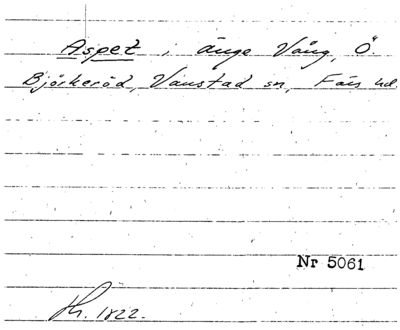 Aspet i änge Vång, Ö.
Björkeröd, Vanstad sn, Färs hd.
Nr 5061
Sk. 1822.